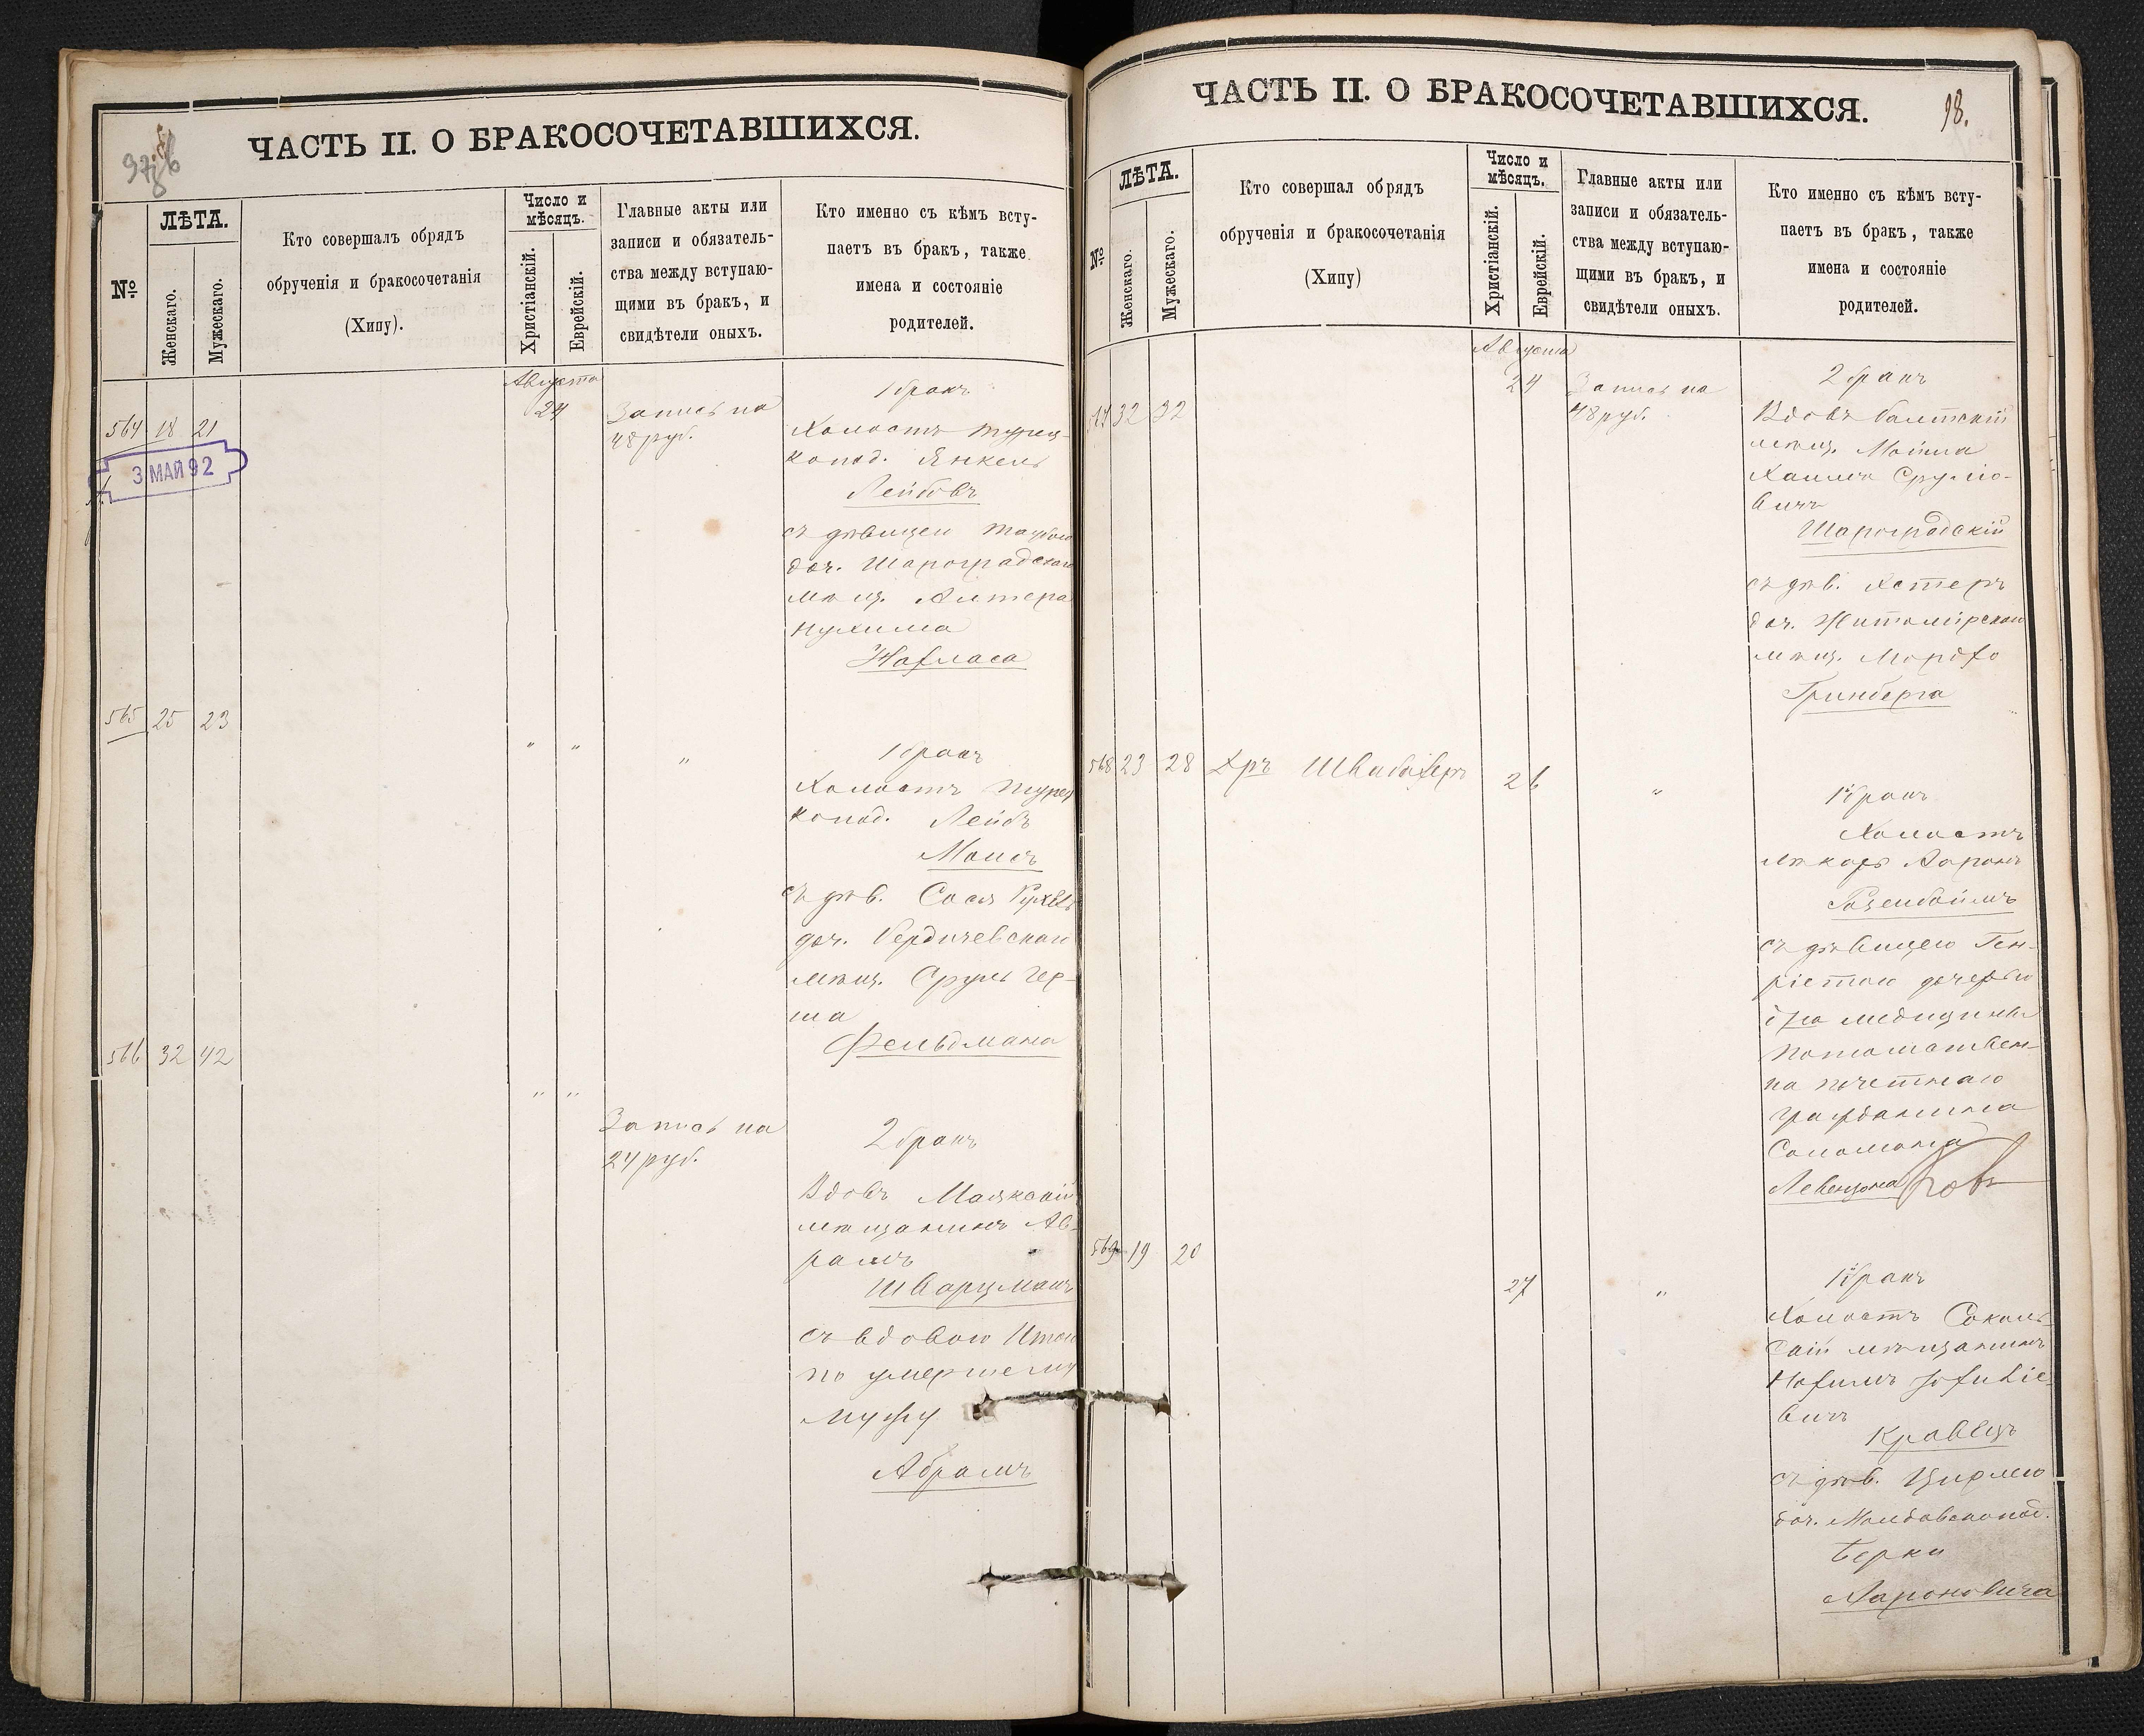 ЧАСТЬ II. О БРАКОСОЧЕТАВШИХСЯ.
№
ЛѢТА.
Женскаго.
Мужескаго.
Кто совершалъ обрядъ
обрученія и бракосочетанія
(Хипу).
Число и
мѣсяцъ.
Христіанскій.
Еврейскій.
Главные акты или
записи и обязатель-
ства между вступаю-
щими въ бракъ, и
свидѣтели оныхъ.
Кто именно съ кѣмъ всту-
паетъ въ бракъ, также
имена и состояніе
родителей.
564 18 21
Августа
24
Запись на
48 руб.
1 бракъ
Холостъ турец-
копод. Янкель
Лейбовъ
съ дѣвицей Таубою
доч. Шароградскаго
мѣщ. Алтера
Нухима
3 МАЙ 92
565 25 23
" "
"
1 бракъ
Холостъ турец
копод. Лейбъ
съ дѣв. Сося Рухель
доч. Бердичевскаго
мѣщ. Сруль Гер-
ша
Фельдмана
566 32 42
" "
Запись на
24 руб.
2 бракъ
Вдовъ Маякскій
мѣщанинъ Аб-
рамъ
Шварцманъ
съ вдовою
по умершему
мужу
Абрамъ
ЧАСТЬ II. О БРАКОСОЧЕТАВШИХСЯ.
98.
№
ЛѢТА.
Женскаго.
Мужескаго.
Кто совершал обрядъ
обрученія и бракосочетанія
(Хипу)
Число и
мѣсяцъ.
Христіанскій.
Еврейскій.
Главные акты или
записи и обязатель-
ства между вступаю-
щими въ бракъ, и
свидѣтели оныхъ.
Кто именно съ кѣмъ всту-
паетъ въ бракъ, также
имена и состояніе
родителей.
32 32
Августа
24
Запись на
48 руб.
2 бракъ
Вдовъ балтскій
мѣщ. Мошка
Хаимъ Сруліо-
вичъ
Шароградскій
съ дѣв. Хстеръ
доч. Житомірскаго
мѣщ. Мордко
Гринберга
568 23 28
Д-ръ Швабахеръ
26
"
1й бракъ
Холостъ
лекарь Ааронъ
Розенблюмъ
съ дѣвицею Ген-
ріетою дочерью
д-ра медицины
потомствен-
на почетнаго
гражданина
Соломона
Левензона
569 19 20
27
"
1й бракъ
Холостъ Соколь-
скій мѣщанинъ
вичъ
Кравецъ
съ дѣв. Цирлею
доч. Молдавскопод.
Берки
Аароновича